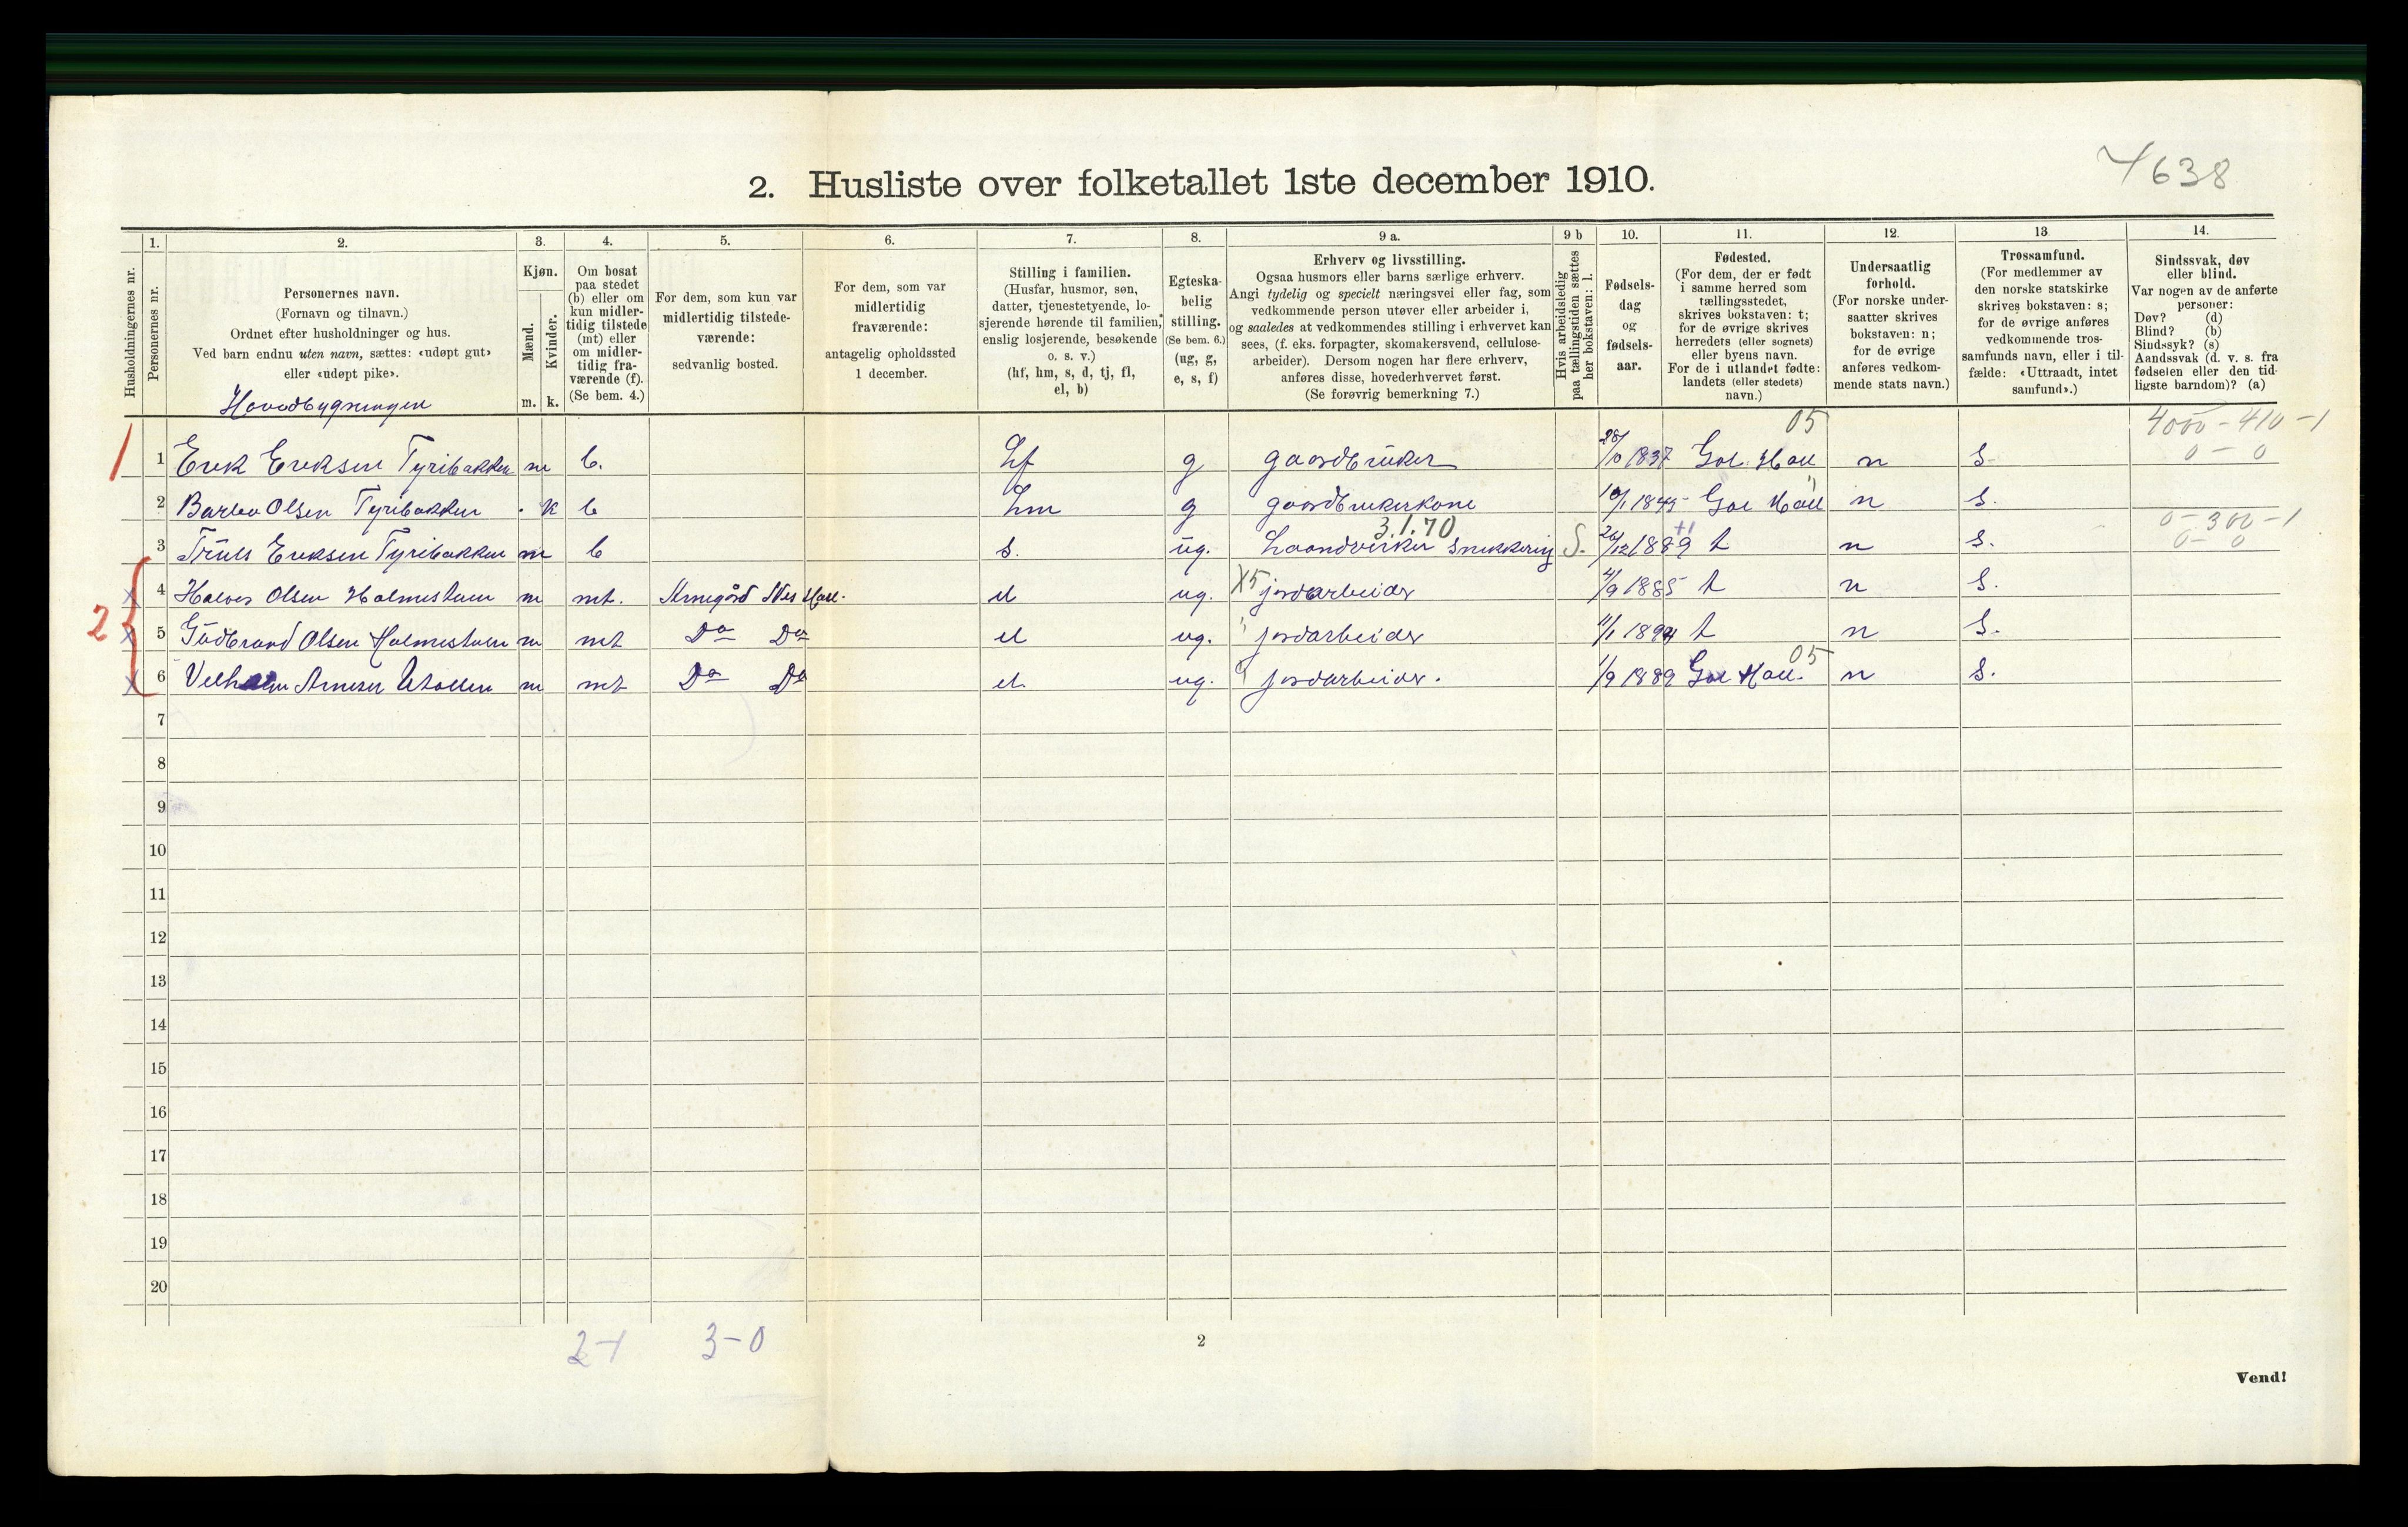 2. Husliste over folketallet 1ste december 1910.
4638
Husholdningernes nr.
1.
Personernes nr.
2.
Personernes navn.
(Fornavn og tilnavn.)
Ordnet efter husholdninger og hus.
Ved barn endnu uten navn, sættes: «udøpt gut»
eller «udøpt pike».
Hovedbygningen
3.
Kjøn.
Mænd.
Kvinder.
m. k.
4.
Om bosat
paa stedet
(b) eller om
kun midler-
tidig tilstede
(mt) eller
om midler-
tidig fra-
værende (f).
(Se bem. 4.)
5.
For dem, som kun var
midlertidig tilstede-
værende:
sedvanlig bosted.
6.
For dem, som var
midlertidig
fraværende:
antagelig opholdssted
1 december.
7.
Stilling i familien.
(Husfar, husmor, søn,
datter, tjenestetyende, lo-
sjerende hørende til familien,
enslig losjerende, besøkende
o. s. v.)
(hf, hm, s, d, tj, fl,
el, b)
8.
Egteska-
belig
stilling.
(Se bem. 6.)
(ug, g,
e, s, f)
9 a.
Erhverv og livsstilling.
Ogsaa husmors eller barns særlige erhverv.
Angi tydelig og specielt næringsvei eller fag, som
vedkommende person utøver eller arbeider i,
og saaledes at vedkommendes stilling i erhvervet kan
sees, (f. eks. forpagter, skomakersvend, cellulose-
arbeider). Dersom nogen har flere erhverv,
anføres disse, hovederhvervet først.
(Se forøvrig bemerkning 7.)
9 b
Hvis arbeidsledig
paa tællingstiden sættes
her bokstaven: l.
10.
Fødsels-
dag
og
fødsels-
aar.
11.
Fødested.
(For dem, der er født
i samme herred som
tællingsstedet,
skrives bokstaven: t;
for de øvrige skrives
herredets (eller sognets)
eller byens navn.
For de i utlandet fødte:
landets (eller stedets)
navn.)
12.
Undersaatlig
forhold.
(For norske under-
saatter skrives
bokstaven: n;
for de øvrige
anføres vedkom-
mende stats navn.)
13
Trossamfund.
(For medlemmer av
den norske statskirke
skrives bokstaven: s;
for de øvrige anføres
vedkommende tros-
samfunds navn, eller i til-
fælde: «Uttraadt, intet
samfund».)
14.
Sindssvak, døv
eller blind.
Var nogen av de anførte
personer:
Døv? (d)
Blind? (b)
Sindssyk? (s)
Aandssvak (d. v. s. fra
fødselen eller den tid-
ligste barndom)? (a)
05 4000-410-1
1 1 Erik Eriksen Tyribakken m b. hf g gaardbruker 28/10 1837 Gol Hall n s. 0-0
2 Barbo Olsen Tyribakken . k b hm g gaardbrukerkone 10/1 1845 Gol Hall n s.
3.1.70 +1 0-300-1
3 Truls Eriksen Tyribakken m b s. ug. haandverker snekkering S. 26/12 1889 t n s. 0-0
2 x 4 Halvor Olsen Holmestuen m mt. Arnegård Nes Hall. el ug. X5 jordarbeider 4/9 1885 t n s.
x 5 Gudbrand Olsen Holmestuen m mt Do Do el ug. " jordarbeider 11/1 1894 t n s.
05
x 6 Vilhelm Arnesen m mt Do Do el. ug. jordarbeider. 1/9 1889 Gol Hall. n s.
7
8
9
10
11
12
13
14
15
16
17
18
19
20
2-1 3-0
2
Vend!